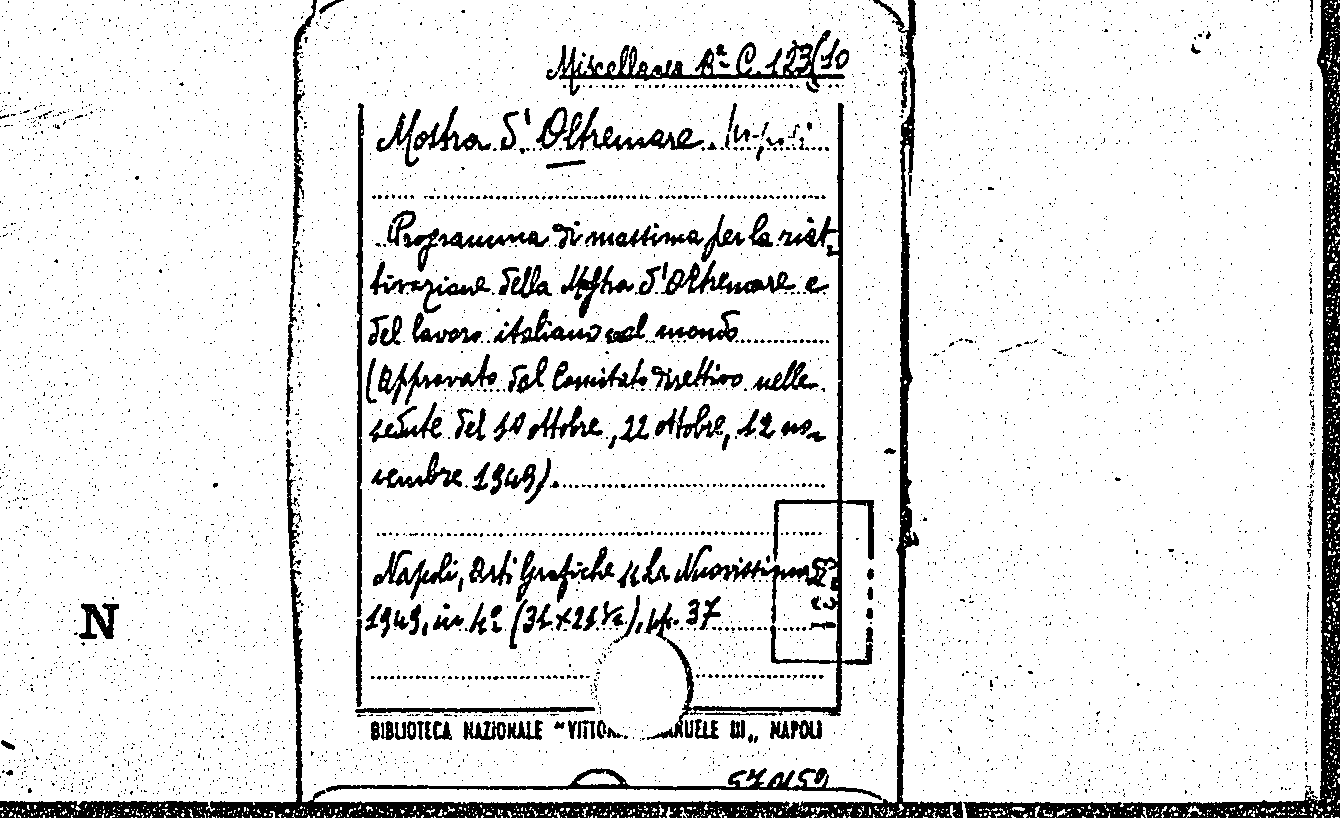 Miscellanea Bª C. 123(10
Mostra d'Oltremare. Napoli
Programma di massima per la riat-
tivazione della Mostra d'Oltremare e
del lavoro italiano nel mondo
(Approvato dal Comitato direttivo nelle
sedute del 10 ottobre, 22 ottobre, 12 no-
vembre 1949).
Napoli, Arti Grafiche "La Nuovissima
1949, in 4º (31 x 21 ½), pp. 37
N
BIBLIOTECA NAZIONALE "VITTOR NUELE III„ NAPOLI